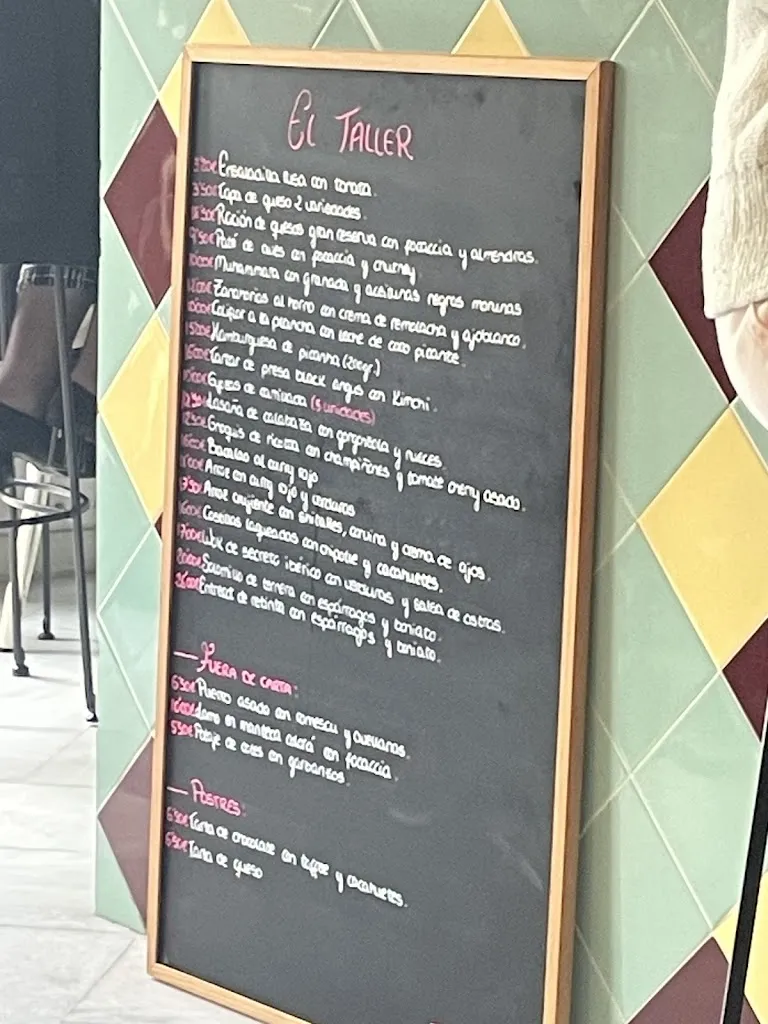 El Taller
Ensaladilla rusa con tomate.
3'50€ Tapa de queso 2 variedades.
Ración de quesos gran reserva con focaccia y almendras.
9'50€ Paté de aves con focaccia y chutney
10'00€ Muhammara con granada y aceitunas negras morunas
Zanahorias al horno con crema de remolacha y ajoblanco.
Calamar a la plancha con leche de coco picante.
15'00€ Hamburguesa de picanha (200gr.)
16'00€ Tartar de presa black angus con Kimchi.
Gyozas de carrillada (5 unidades)
12'50€ Lasaña de calabaza con gorgonzola y nueces.
12'50€ Gnoquis de ricotta con champiñones y tomate cherry asado.
Bacalao al curry rojo
Arroz con curry rojo y verduras
17'50€ Arroz crujiente con shiitakes, corvina y crema de ajos.
16'00€ Costillas laqueadas con chipotle y cacahuetes.
17'00€ Wok de secreto ibérico con verduras y salsa de ostras.
20'00€ Solomillo de ternera con espárragos y boniato.
Entrecot de retinta con espárragos y boniato.
— Fuera de carta:
6'50€ Puerro asado con romescu y avellanas.
Lomo en manteca con focaccia
5'50€ Potaje de con garbanzos.
— Postres:
6'50€ Tarta de chocolate con toffee y cacahuetes.
6'50€ Tarta de queso